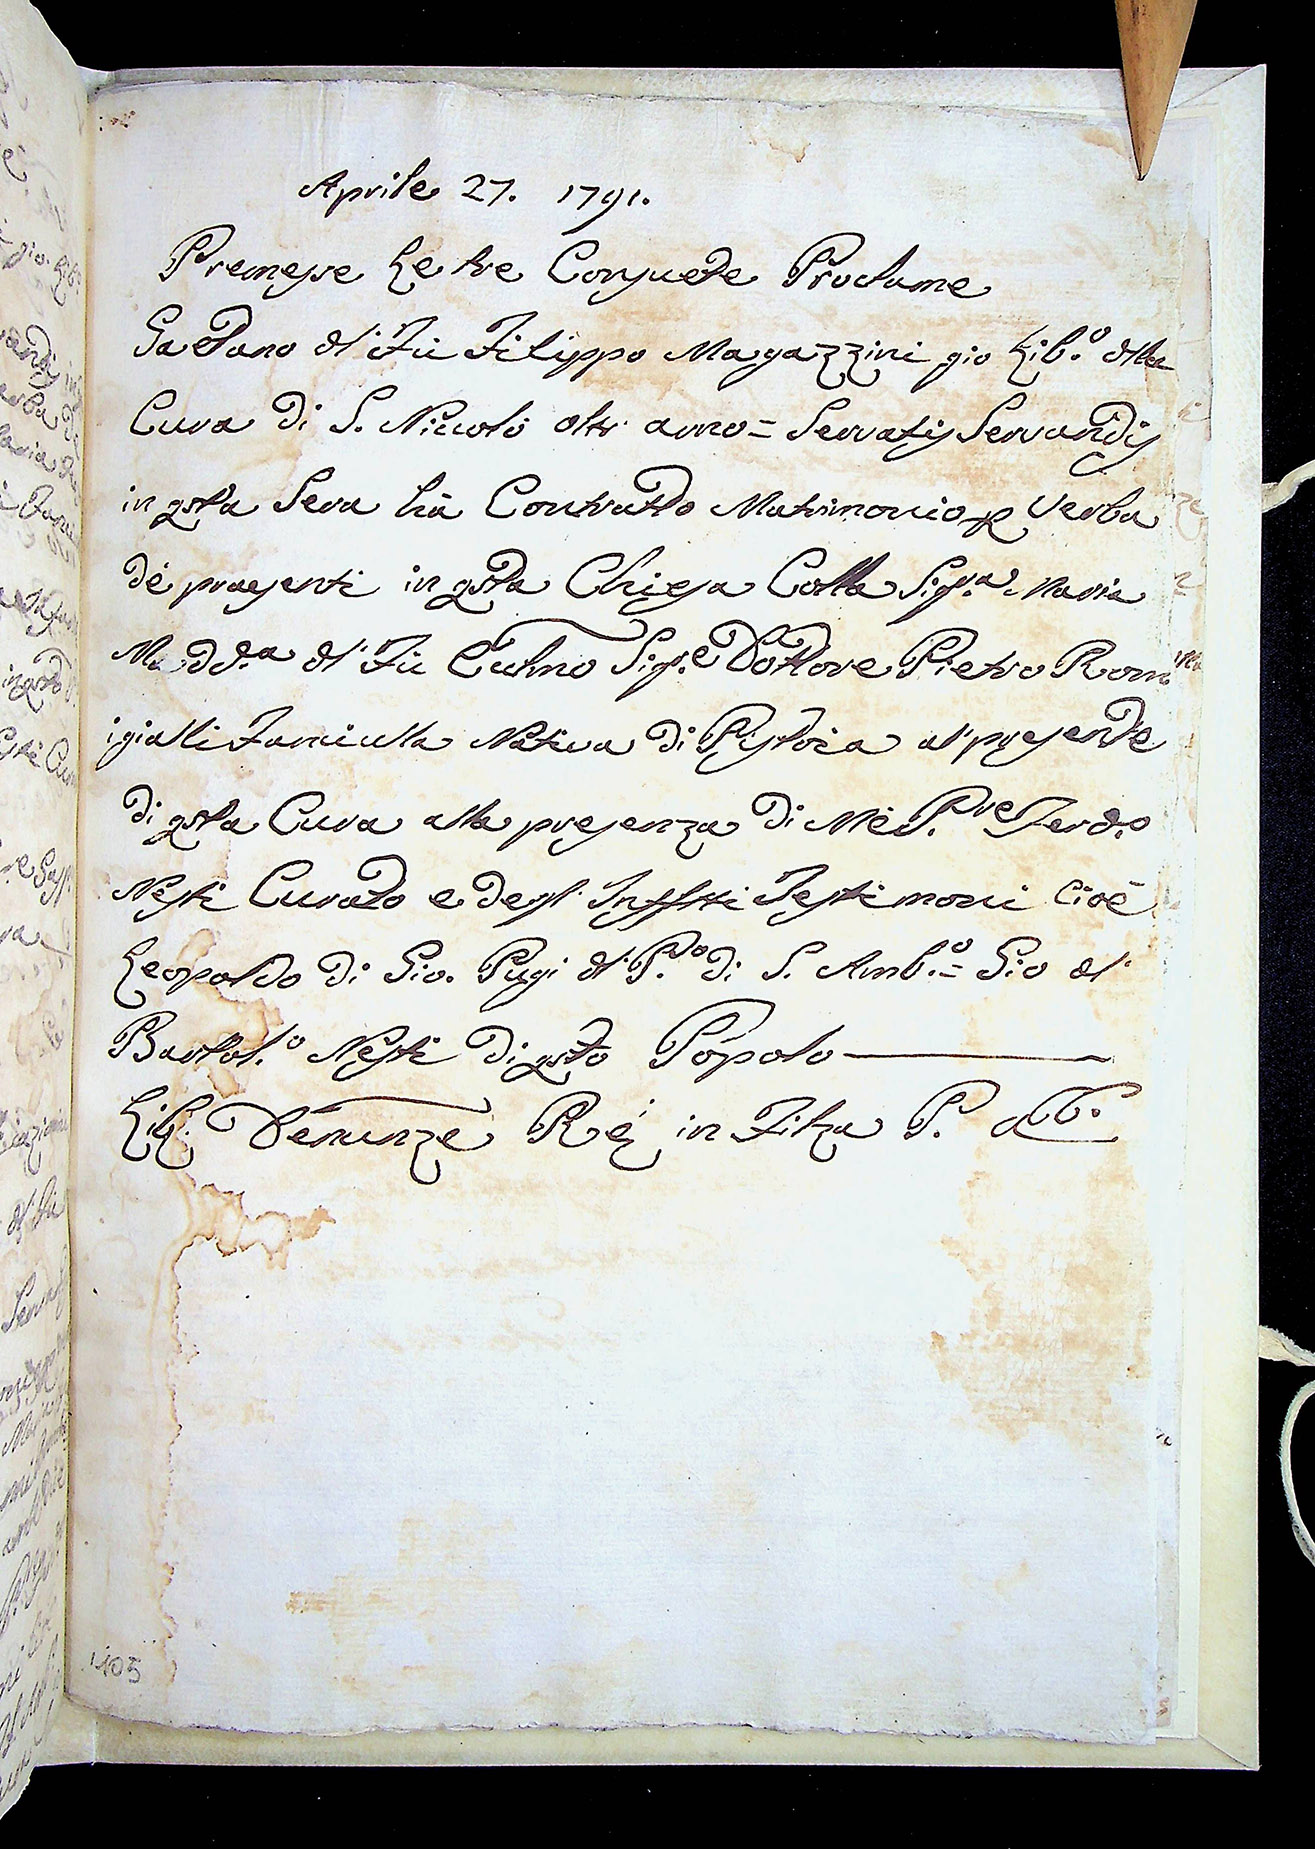 Aprile 27. 1791.
Premesse Le tre Consuete Proclame
Gaetano dl' Fù Filippo Magazzini gio Lib.º dlla
Cura di S. Niccolò oltr' arno = Servatis Servandis
in qsta Sera hà Contratto Matrimonio p Verba
dè praesenti in qsta Chiesa Colla Sig.ra Maria
Madd.a dl' Fù Eccl.mo Sig.e Dottore Pietro Rom
igialli Fanciulla Nativa di Pistoia al' presente
di qsta Cura alla presenza di Mè P.re Ferd.º
Nesti Curato e degl' Inffstti Testimoni Cioè
Leopoldo di Gio. Pugi dl' P.lo di S. Amb.º = Gio dl'
Bartol.º Nesti di qsto Popolo
Lib. Denunze in Filza P.
105